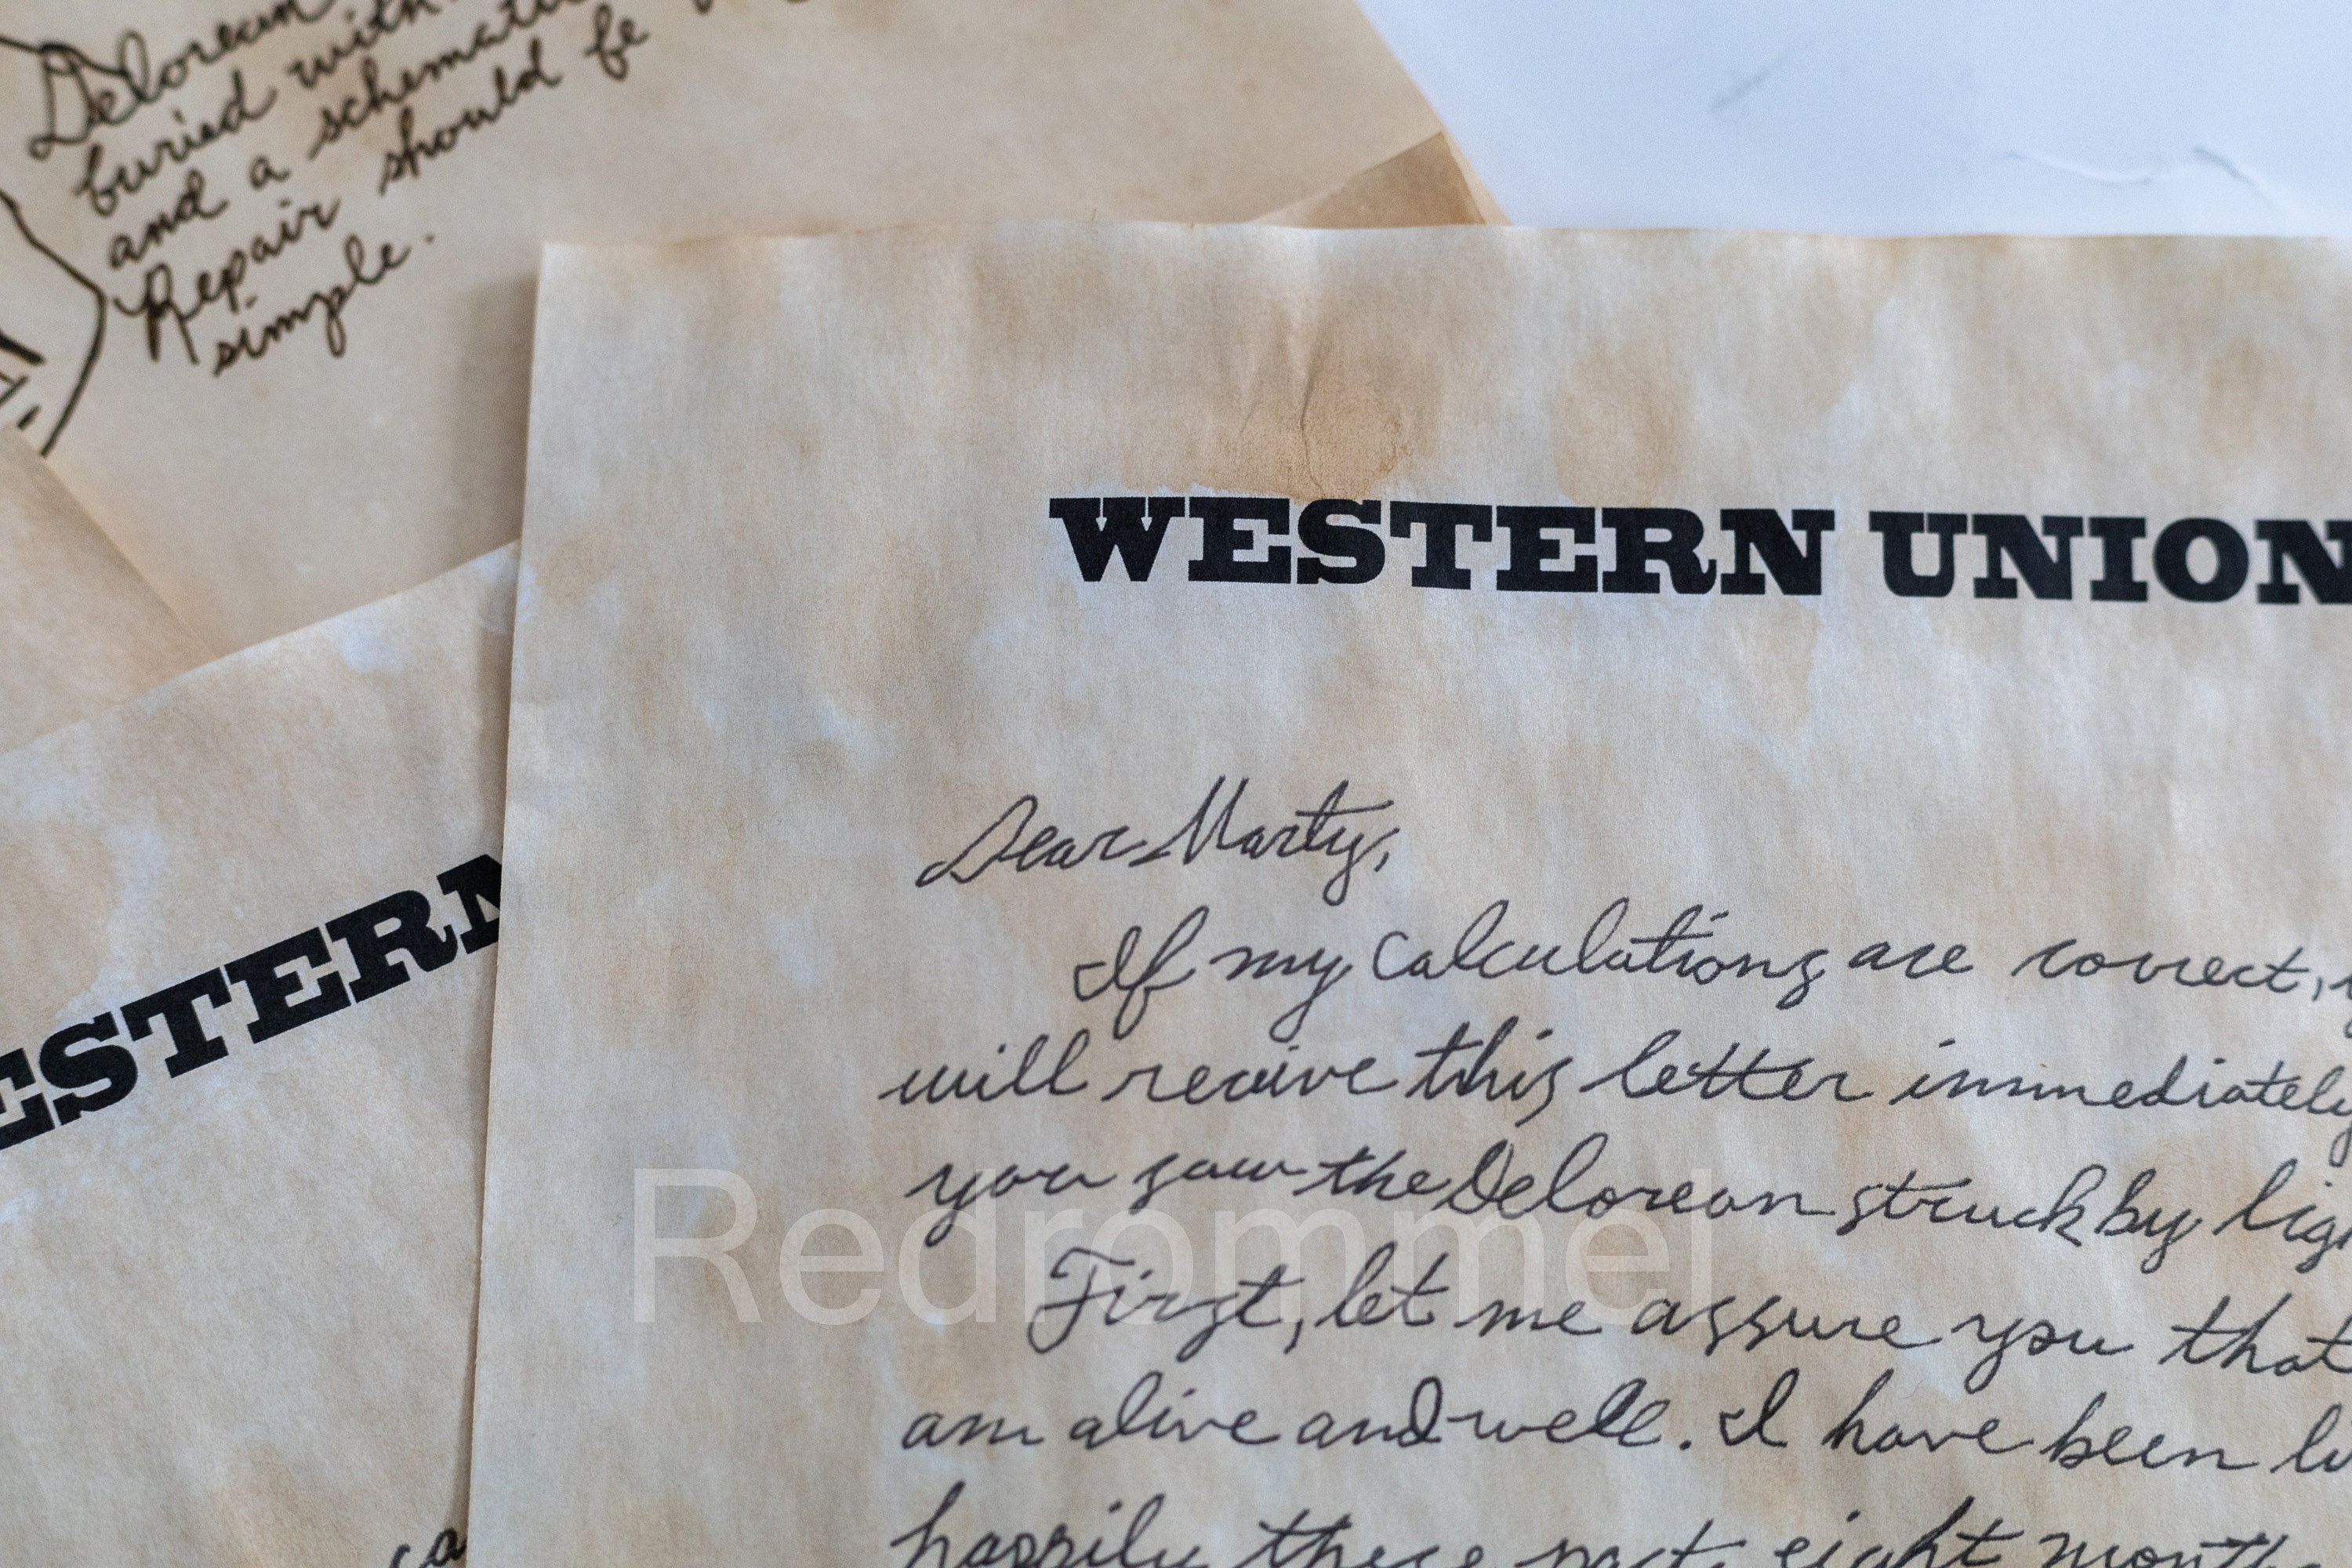 Delorean
buried with
and a schemati
Repair should be
simple.
WESTERN UNION
Dear Marty,
If my calculations are correct,
will recive this letter immediately
you saw the Delorean struck by lig
First, let me assure you that
am alive and well. I have been li
happily these past eight month
ESTERN
ca
Redrommel